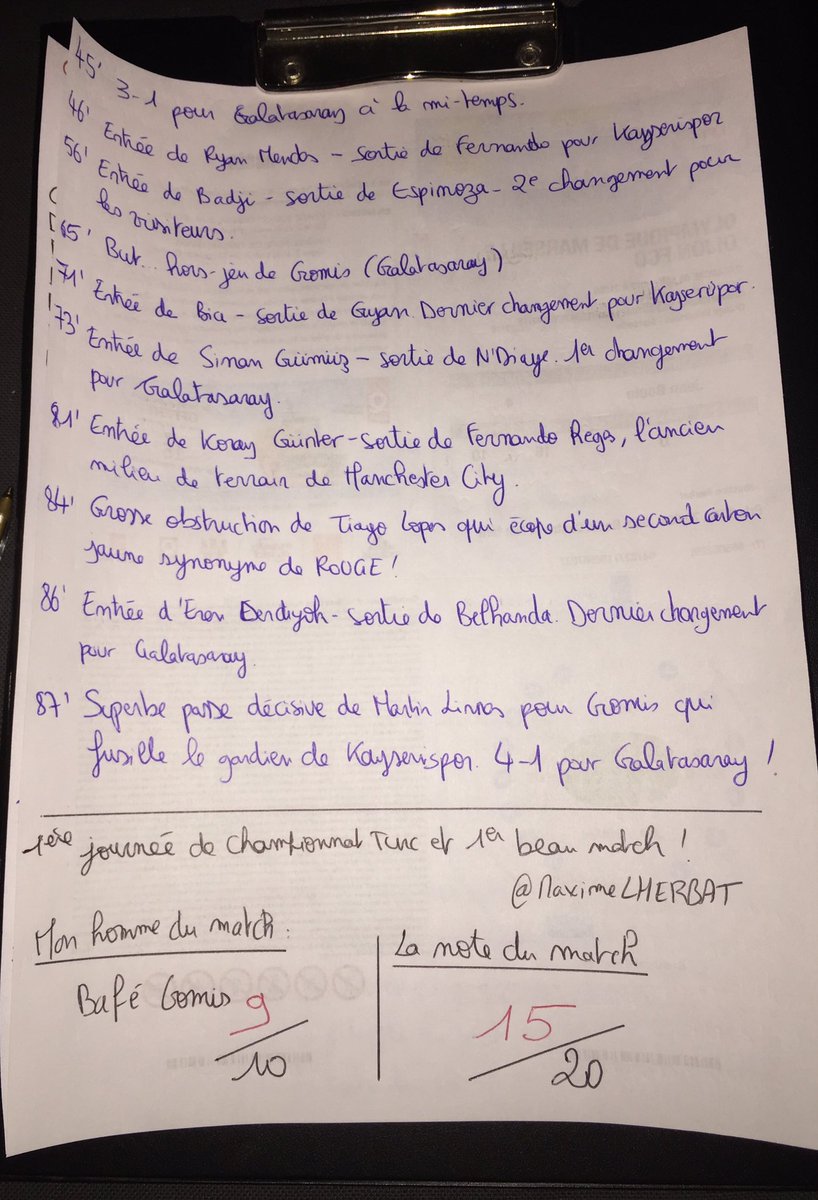 45' 3-1 pour Galatasaray à la mi-temps.
46' Entrée de Ryan Mendes - sortie de Fernando pour Kayserispor
56' Entrée de Badji - sortie de Espinoza - 2e changement pour
les visiteurs.
65' But... hors-jeu de Gomis (Galatasaray)
71' Entrée de Bia - sortie de Gyan. Dernier changement pour Kayserispor.
73' Entrée de Sinan Gümüz - sortie de N'Diaye. 1er changement
pour Galatasaray.
81' Entrée de Koray Günter - sortie de Fernando Reges, l'ancien
milieu de terrain de Manchester City.
84' Grosse obstruction de Tiago Lopes qui écope d'un second carton
jaune synonyme de ROUGE !
86' Entrée d'Eren Derdiyok - sortie de Belhanda. Dernier changement
pour Galatasaray.
87' Superbe passe décisive de Martin Linnes pour Gomis qui
fusille le gardien de Kayserispor. 4-1 pour Galatasaray !
1ère journée de championnat Turc et 1er beau match !
@MaximeLHERBAT
Mon homme du match :
Bafé Gomis 9/10
La note du match
15/20